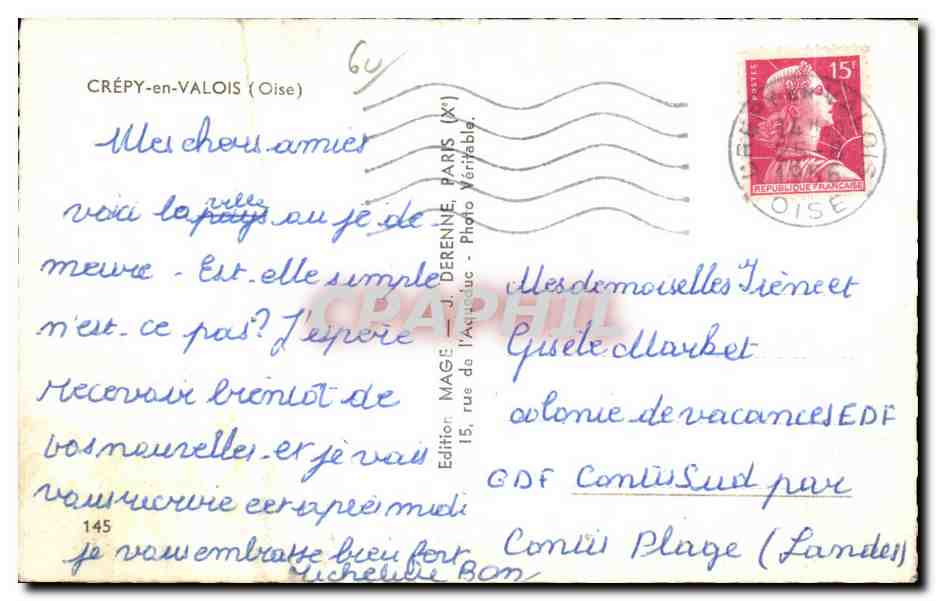 CRÉPY-en-VALOIS (Oise)
60
Mes cheres amies
ville
voici la pays ou je de-
meure - Est-elle simple
n'est-ce pas? J'espere
recevoir bientôt de
vos nouvelles et je vais
vous recrire cet après midi
145
je vous embrasse bien fort
Micheline Bon
Edition MAGE - J. DERENNE, PARIS (Xe)
15, rue de l'Aqueduc - Photo Véritable.
CPAPHIL
POSTES
15F
REPUBLIQUE FRANÇAISE
OISE
Mesdemoiselles Irène et
Gisèle Market
colonie de vacances EDF
GDF Contis Sud par
Contis Plage (Landes)